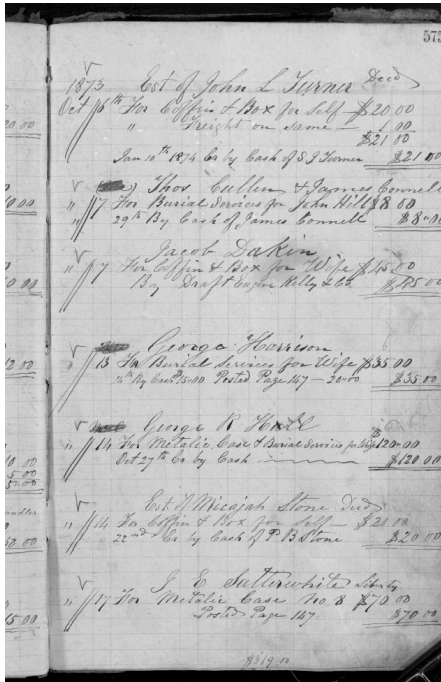 575
1873 Est of John L Turner Deed
Oct 6th For Coffin & Box for Self — $20 00
" Freight on same — 1 00
$21 00
Jan 10th 1874 Cr by Cash of S J Turner $21 00
Thos Cullen & James Connell
" 7 For Burial Services for John Hill $8 00
29th By Cash of James Connell $8 00
Jacob Daken
" 7 For Coffin & Box for Wife $45 00
By Draft Eugene Kelly & Co. $45 00
George Harrison
" 13 For Burial Services for Wife $35 00
By Cash 15.00 Posted Page 147 — 20.00 $35 00
George R Hall
" 14 For Metalic Case & Burial Services for Wife 120 00
Oct 27th Cr by Cash $120 00
Est of Micajah Stone Deed
" 14 For Coffin & Box for Self — $20 00
22nd Cr by Cash of P B Stone $20 00
J E Satterwhite Liberty
" 17 For Metalic Case No 8 $70 00
Posted Page 147 $70 00
$319.00
20 00
10 00
0 00
12 00
10 00
5 00
5 00
50 00
15 00